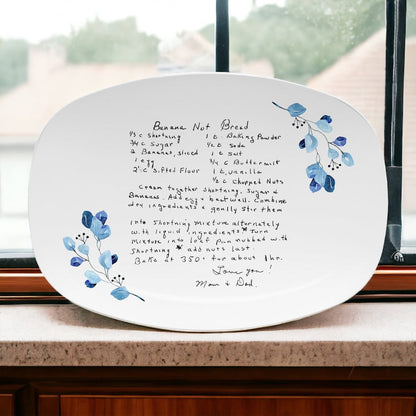 Banana Nut Bread
1/3 c Shortning 1 t Baking Powder
3/4 c Sugar 1/2 t Soda
2 Bananas, sliced 1 t Salt
1 egg 1/4 c Buttermilk
2 c Sifted Flour 1 t vanilla
1/2 c Chopped Nuts
Cream together shortning, sugar &
Bananas. Add egg & beat well. Combine
dry ingredients & gently stir them
into Shortning mixture alternately
with liquid ingredients. Turn
mixture into loaf pan rubbed with
Shortning * add nuts last.
Bake at 350° for about 1 hr.
Love you!
Mom & Dad.